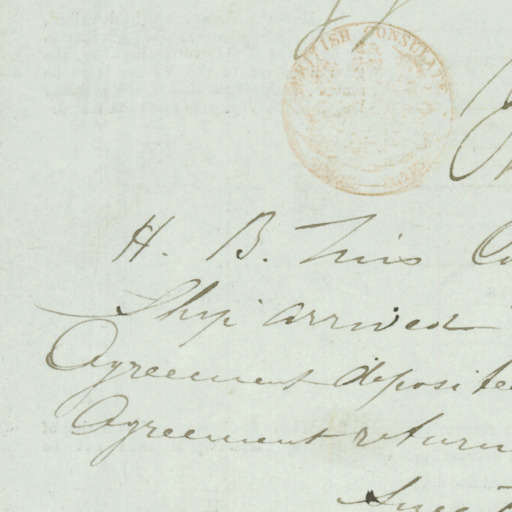 BRITISH CONSULATE
H. B.
Ship arrived
Agreement deposite
Agreement return